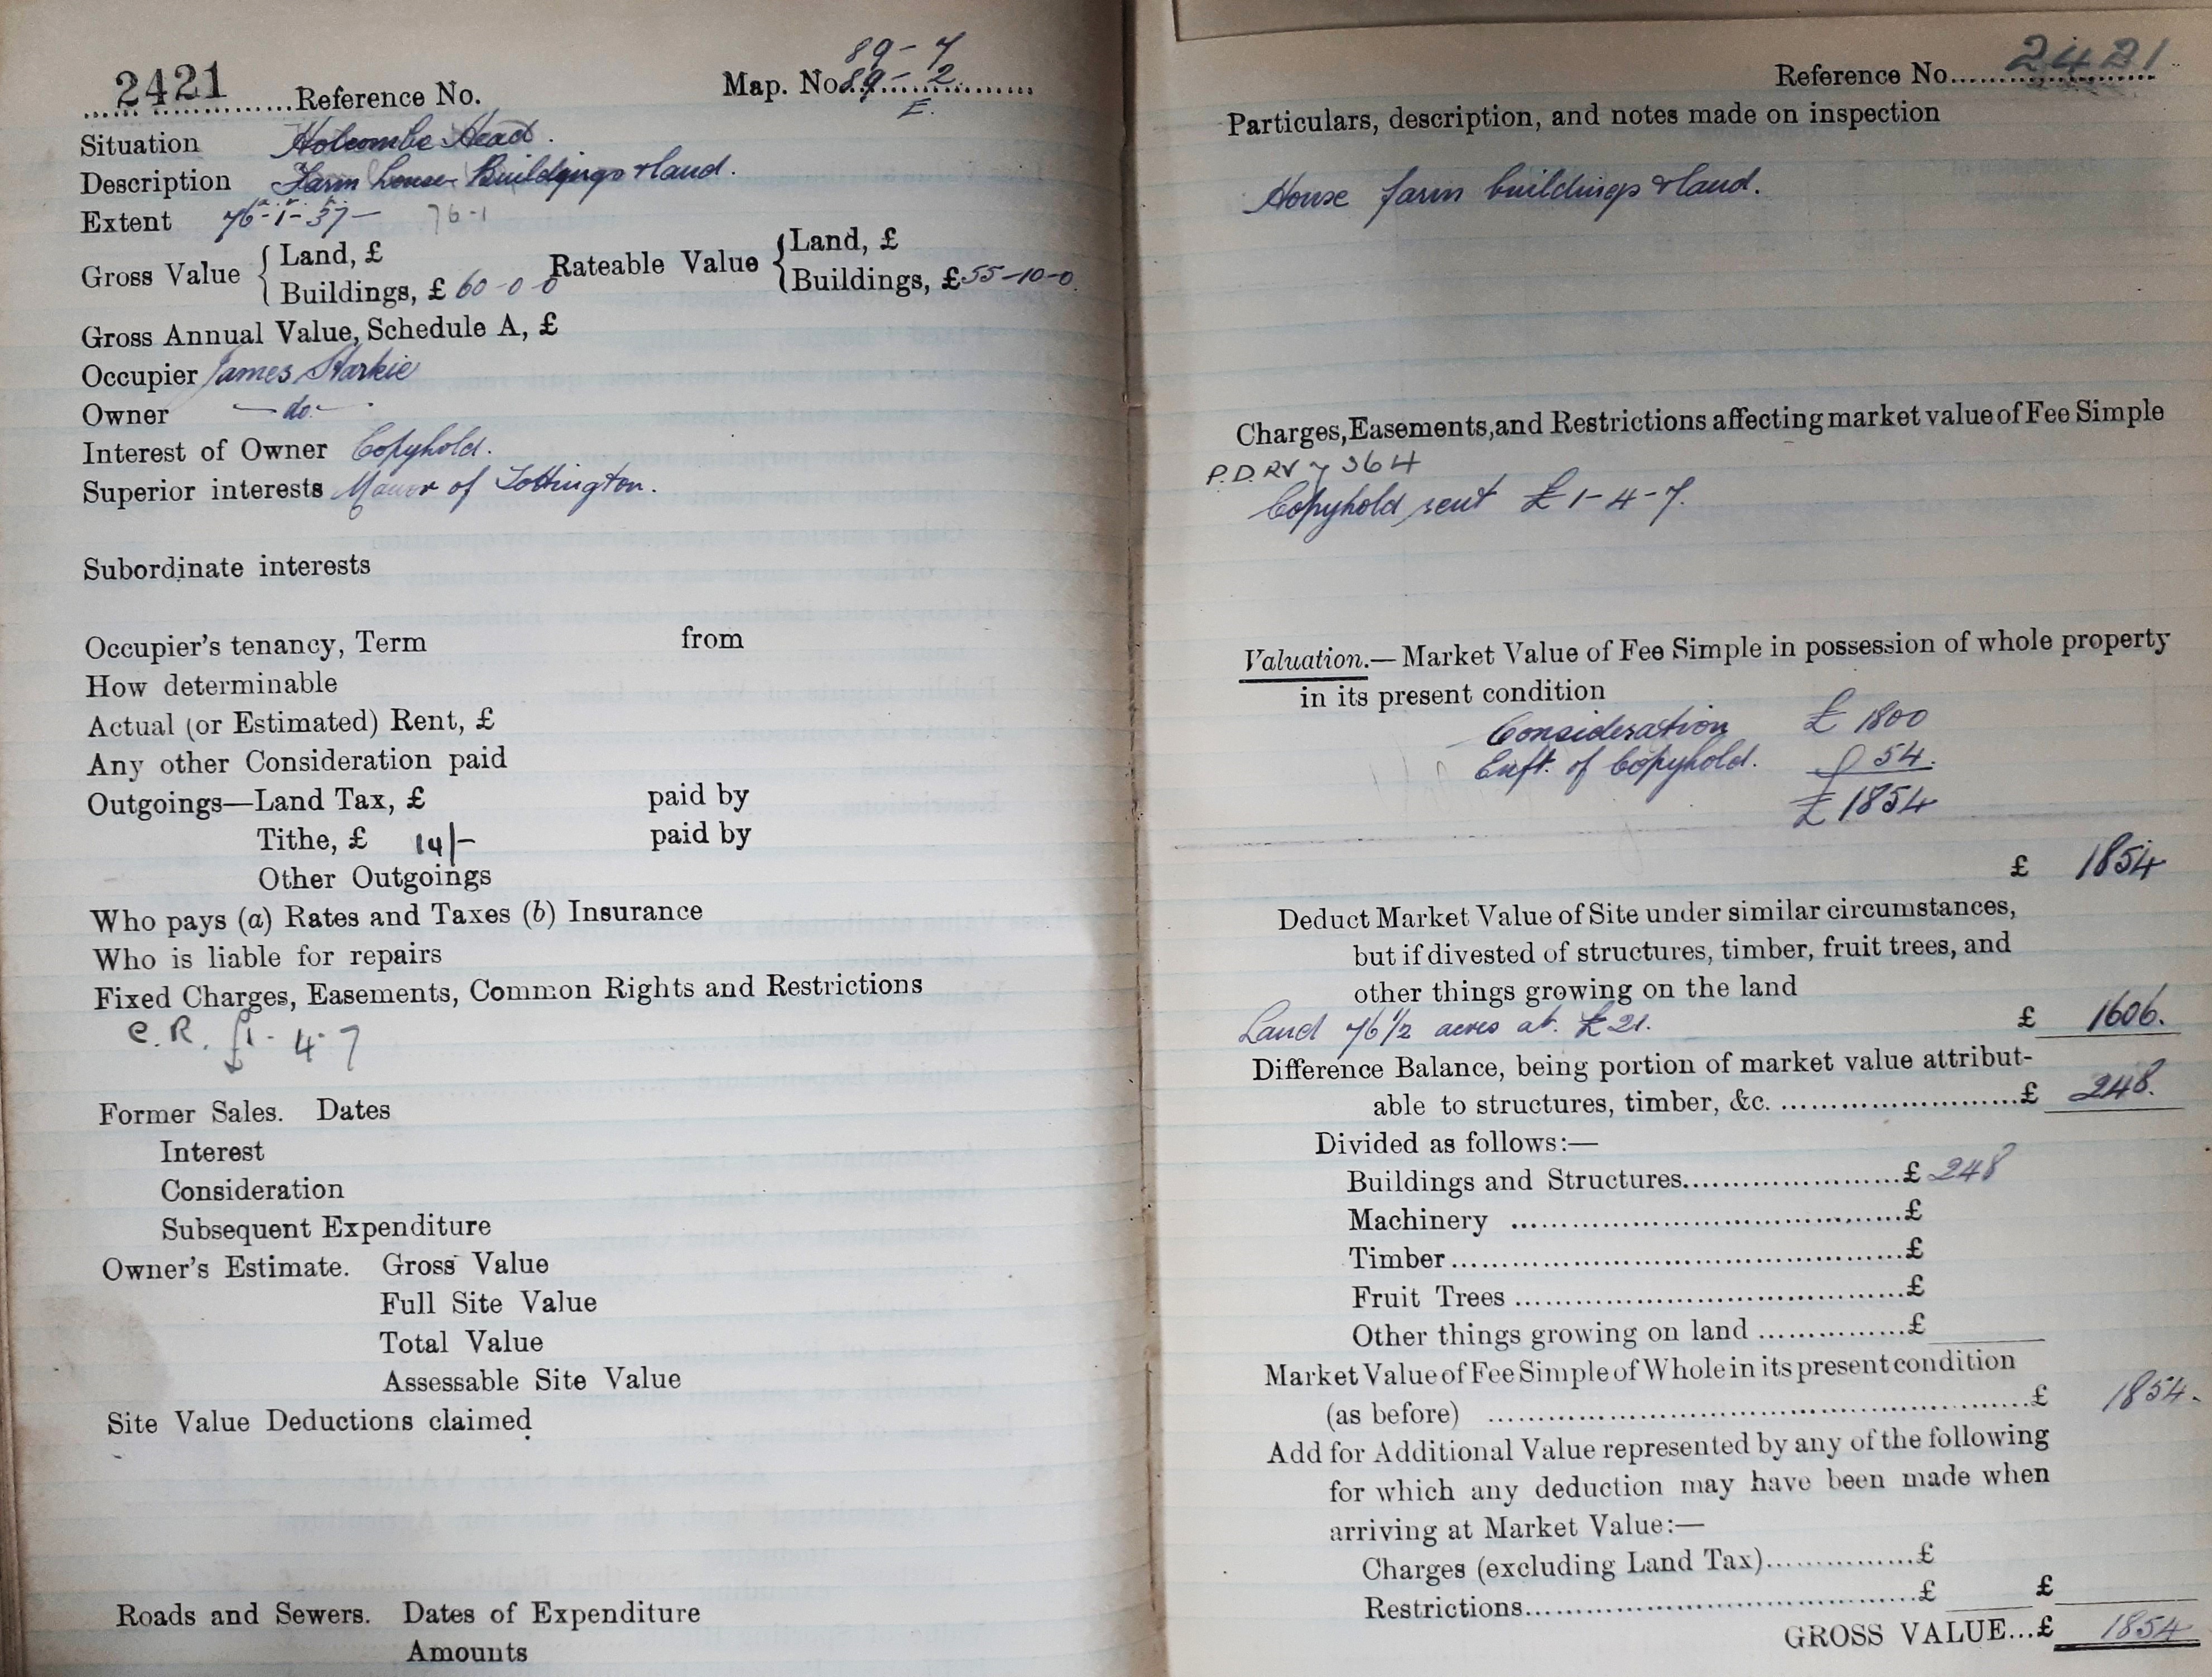 89-7
2421 Reference No. Map. No. 89-2
E.
Situation Holcombe Head.
Description Farm house Buildings & land.
Extent 76-1-37- 76-1
Gross Value { Land, £ Rateable Value { Land, £
Buildings, £ 60-0-0 Buildings, £ 55-10-0
Gross Annual Value, Schedule A, £
Occupier James Starkie
Owner - do. -
Interest of Owner Copyhold.
Superior interests Manor of Tottington.
Subordinate interests
Occupier's tenancy, Term from
How determinable
Actual (or Estimated) Rent, £
Any other Consideration paid
Outgoings—Land Tax, £ paid by
Tithe, £ 14/- paid by
Other Outgoings
Who pays (a) Rates and Taxes (b) Insurance
Who is liable for repairs
Fixed Charges, Easements, Common Rights and Restrictions
C.R. £1-4-7
Former Sales. Dates
Interest
Consideration
Subsequent Expenditure
Owner's Estimate. Gross Value
Full Site Value
Total Value
Assessable Site Value
Site Value Deductions claimed
Roads and Sewers. Dates of Expenditure
Amounts
Reference No. 2421
Particulars, description, and notes made on inspection
House farm buildings & land.
Charges, Easements, and Restrictions affecting market value of Fee Simple
P.D. RV 7 364
Copyhold rent £1-4-7.
Valuation.—Market Value of Fee Simple in possession of whole property
in its present condition
Consideration £ 1800
Enft. of Copyhold. 54.
£ 1854
£ 1854
Deduct Market Value of Site under similar circumstances,
but if divested of structures, timber, fruit trees, and
other things growing on the land
Land 76 1/2 acres at £21. £ 1606.
Difference Balance, being portion of market value attribut-
able to structures, timber, &c. £ 248.
Divided as follows:—
Buildings and Structures £ 248
Machinery £
Timber £
Fruit Trees £
Other things growing on land £
Market Value of Fee Simple of Whole in its present condition
(as before) £ 1854.
Add for Additional Value represented by any of the following
for which any deduction may have been made when
arriving at Market Value:—
Charges (excluding Land Tax) £
Restrictions £ £
GROSS VALUE...£ 1854